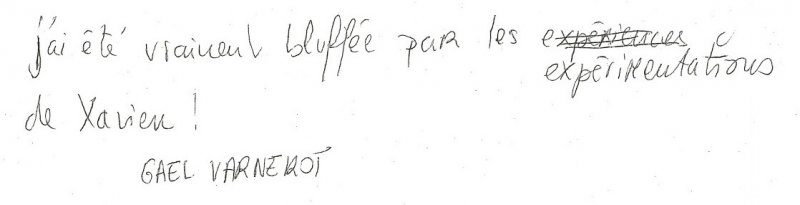 j'ai été vraiment bluffée par les expériences
expérimentations
de Xavier !
GAEL VARNEROT